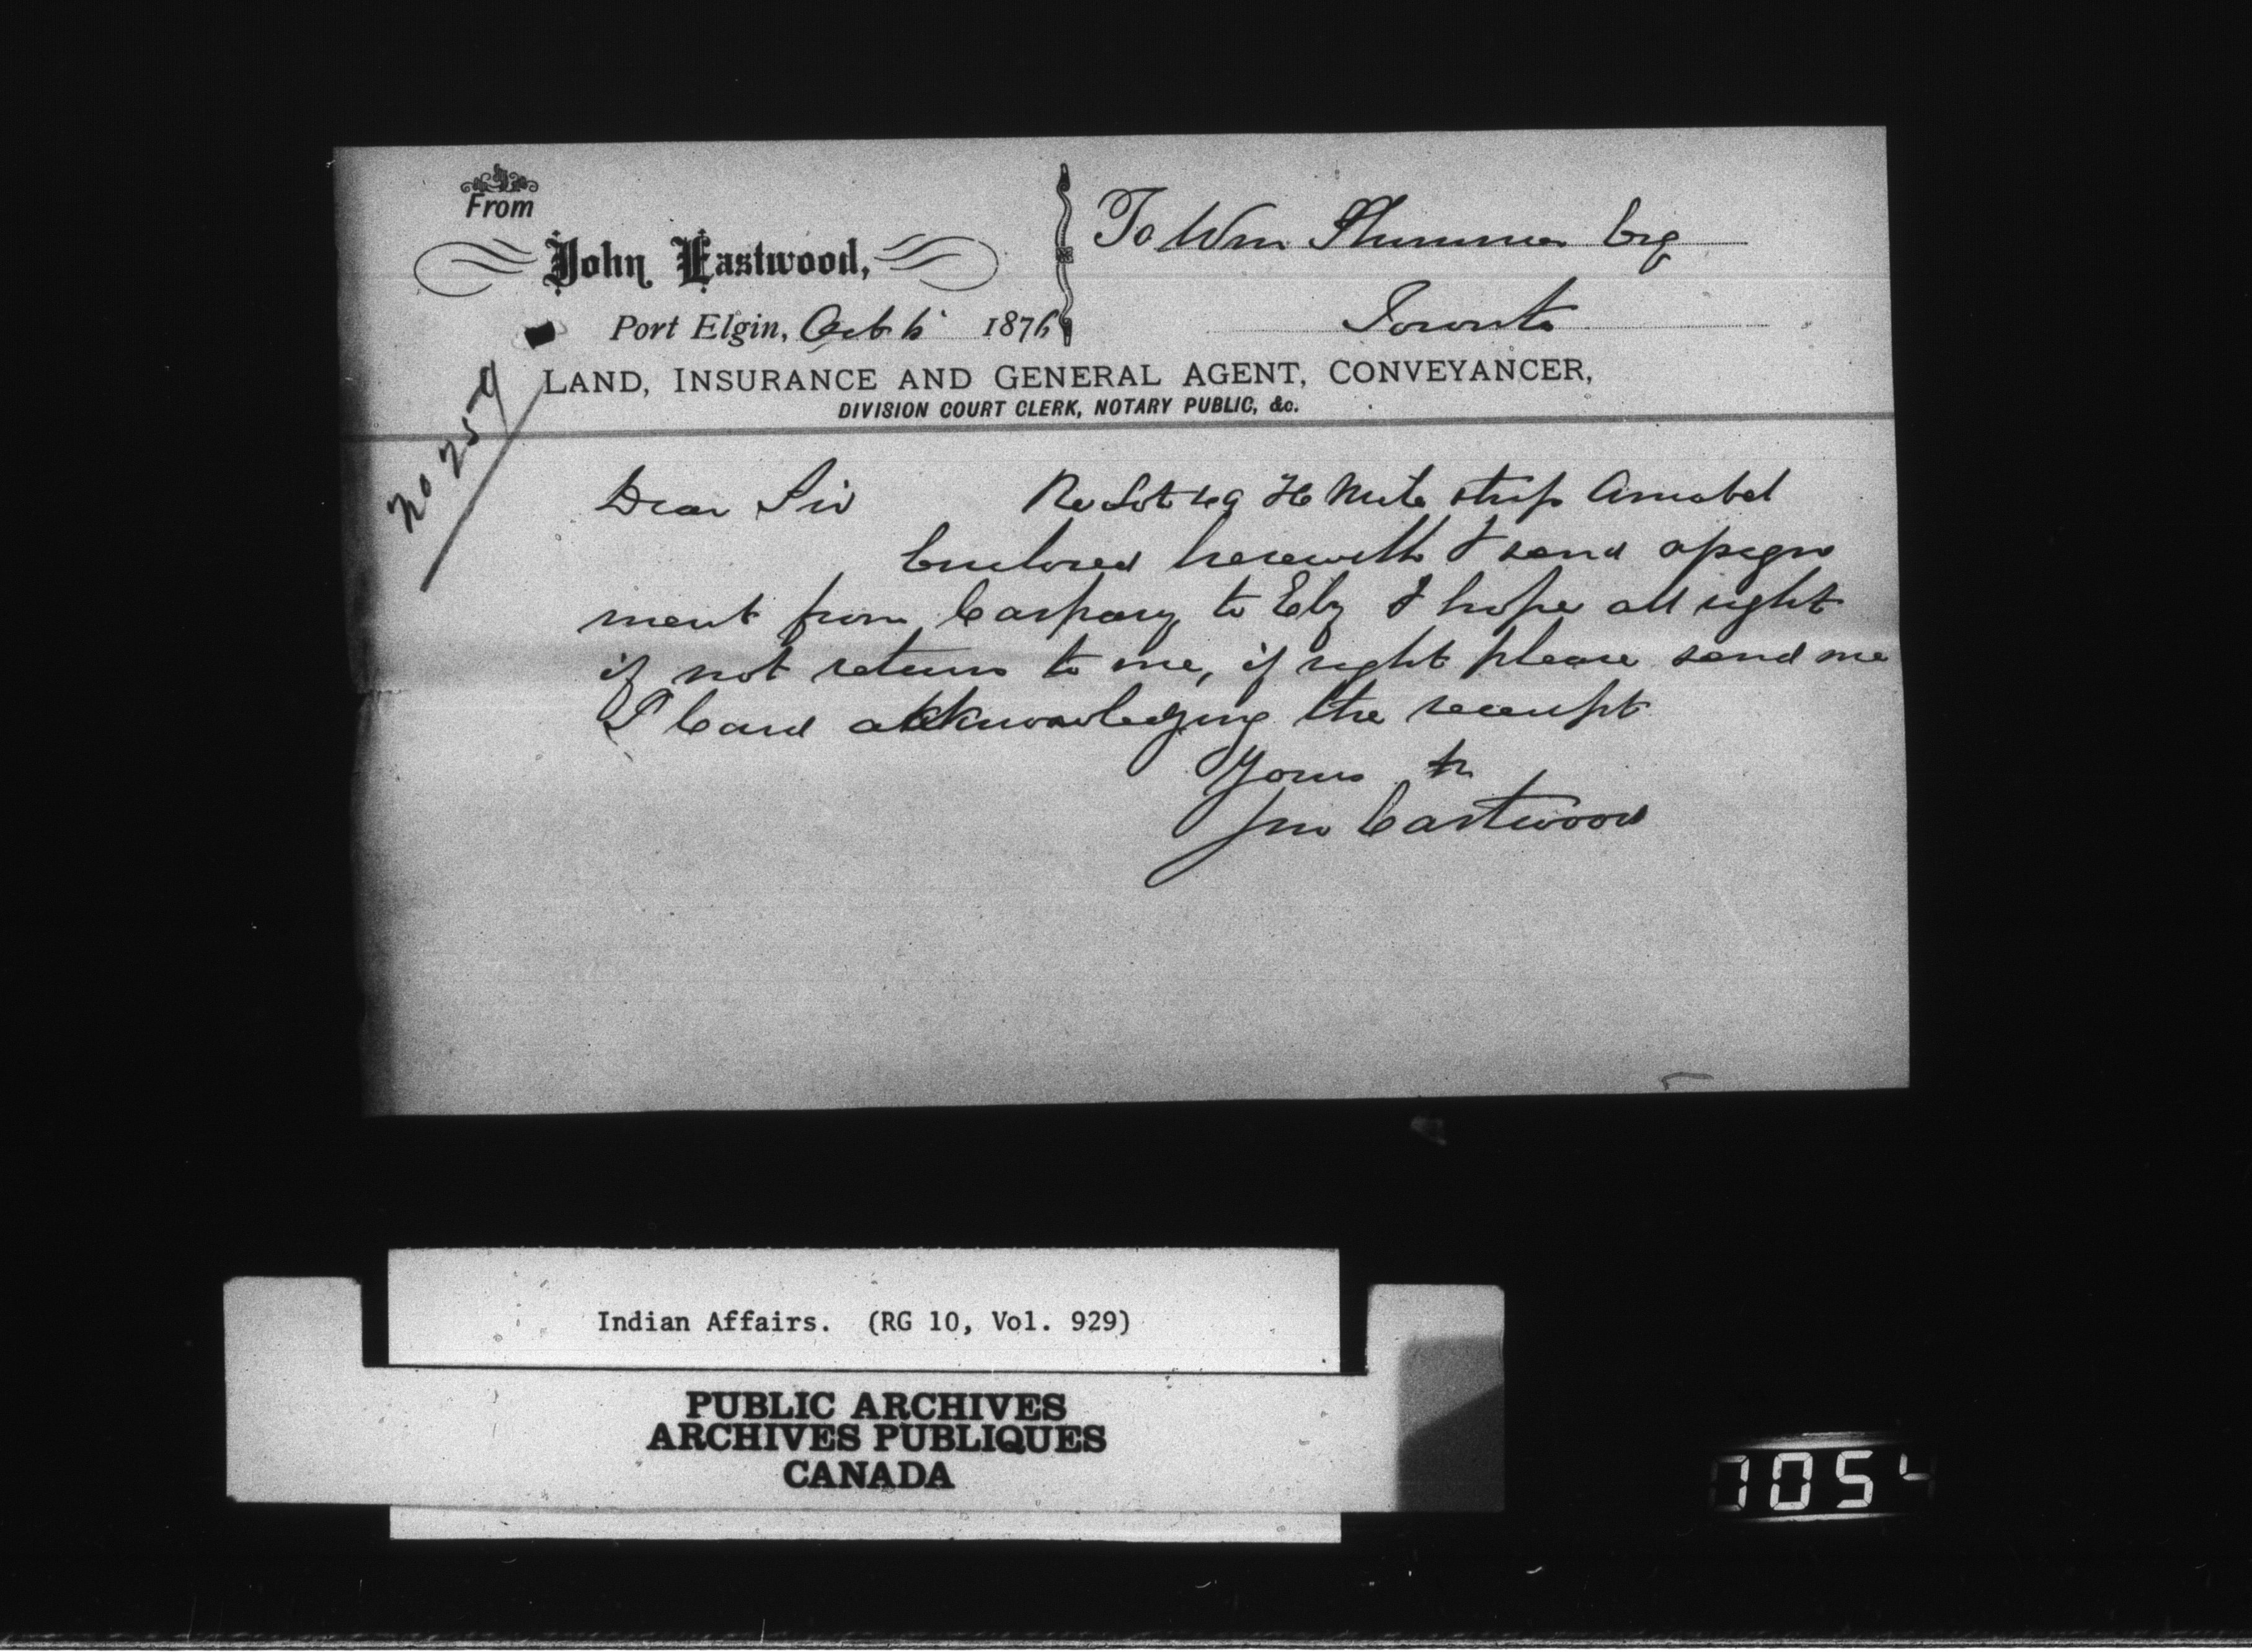 From
John Eastwood,
Port Elgin, Oct 6 1876
To Wm Plummer Esq
Toronto
LAND, INSURANCE AND GENERAL AGENT, CONVEYANCER,
DIVISION COURT CLERK, NOTARY PUBLIC, &c.
No 259
Dear Sir Re Lot 49 Mile strip Amabel
Enclosed herewith I send assign
ment from Caspary to Eby I hope all right
if not return to me, if right please send me
P Card acknowledging the receipt
Yours
Jno Eastwood
Indian Affairs. (RG 10, Vol. 929)
PUBLIC ARCHIVES
ARCHIVES PUBLIQUES
CANADA
7054